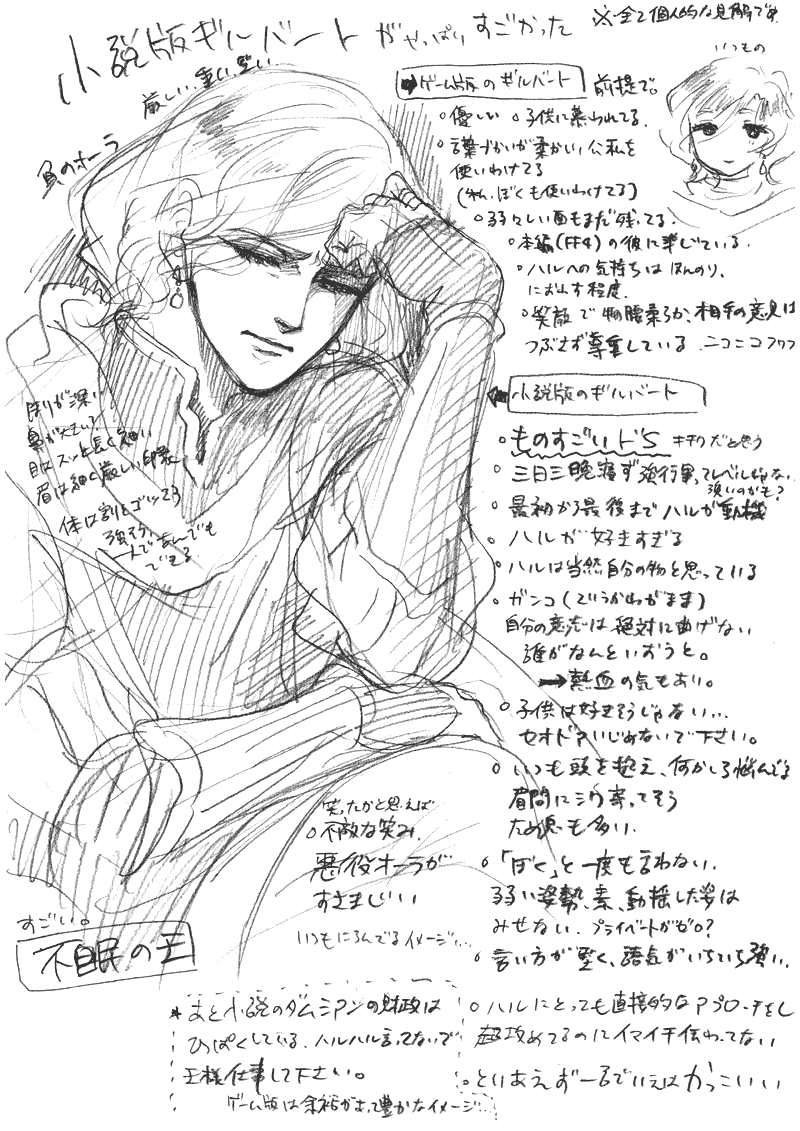 ※全て個人的な見解です
小説版ギルバートがやっぱりすごかった
厳しい、重い、堅い…
負のオーラ
いつもの
➡ゲーム版のギルバート 前提で。
○優しい ○子供に慕われてる.
○言葉づかいが柔かい、公私を
使いわけてる
(私、ぼくも使いわけてる)
○弱々しい面もまだ残ってる.
○本編(FF4)の彼に準じている.
○ハルへの気持ちは ほんのり、
におわす程度.
○笑顔で物腰柔らか、相手の意見は
つぶさず尊重している ニコニコフワフワ
⬅小説版のギルバート
○ものすごいドS キチクだと思う
○三日三晩寝ず強行軍ってレベルじゃない
強いのかも?
○最初から最後までハルが動機
○ハルが好きすぎる
○ハルは当然自分の物と思っている
○ガンコ(ていうかわがまま)
自分の意志は絶対に曲げない
誰がなんといおうと。
➡熱血の気もあり。
○子供は好きそうじゃない…
セオドアいじめないで下さい。
○いつも頭を抱え、何かしら悩んでる
眉間にシワ寄ってそう
ため息も多い.
○「ぼく」と一度も言わない.
弱い姿勢、素、動揺した姿は
みせない. プライベートがゼロ?
○言い方が堅く、語気がいちいち強い.
彫りが深い
鼻が大きい?
目はスッと長く細い
眉は細く厳しい印象
体は割とゴツってる
強そう、
一人でなんでも
できる
笑ったかと思えば
○不敵な笑み.
悪役オーラが
すさまじい
いつもにらんでるイメージ…
すごい。
不眠の王
*あと小説のダムシアンの財政は
ひっぱくしている. ハルハル言ってないで
王様仕事して下さい。
ゲーム版は余裕があって豊かなイメージ…
○ハルにとっても直接的なアプローチをし
超攻めてるのにイマイチ伝わってない
○とりあえずーるでいえばかっこいい